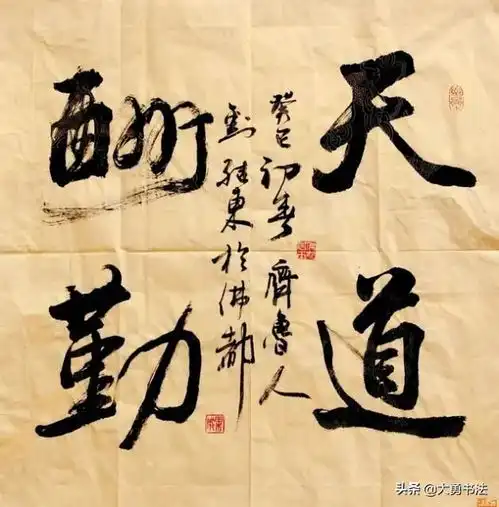 天道
癸巳初春齊魯人
東於佛都
酬勤
头条 @大勇书法